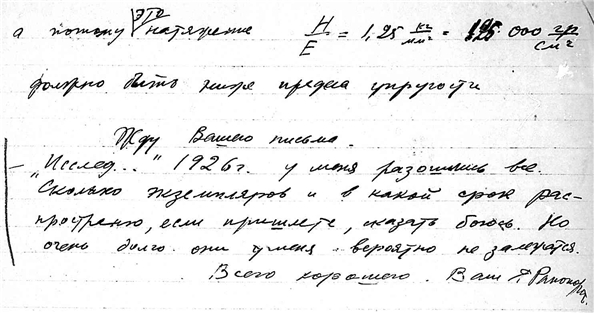 а потому это натяжение H/E = 1,25 кг/мм² = 125.000 гр/см²
должно быть ниже предела упругости
Жду Вашего письма.
– „Исслед..." 1926г. у меня разошлись все.
Сколько экземпляров и в какой срок рас-
пространю, если пришлете, сказать боюсь. Но
очень долго они у меня вероятно не залежатся.
Всего хорошего. Ваш Я